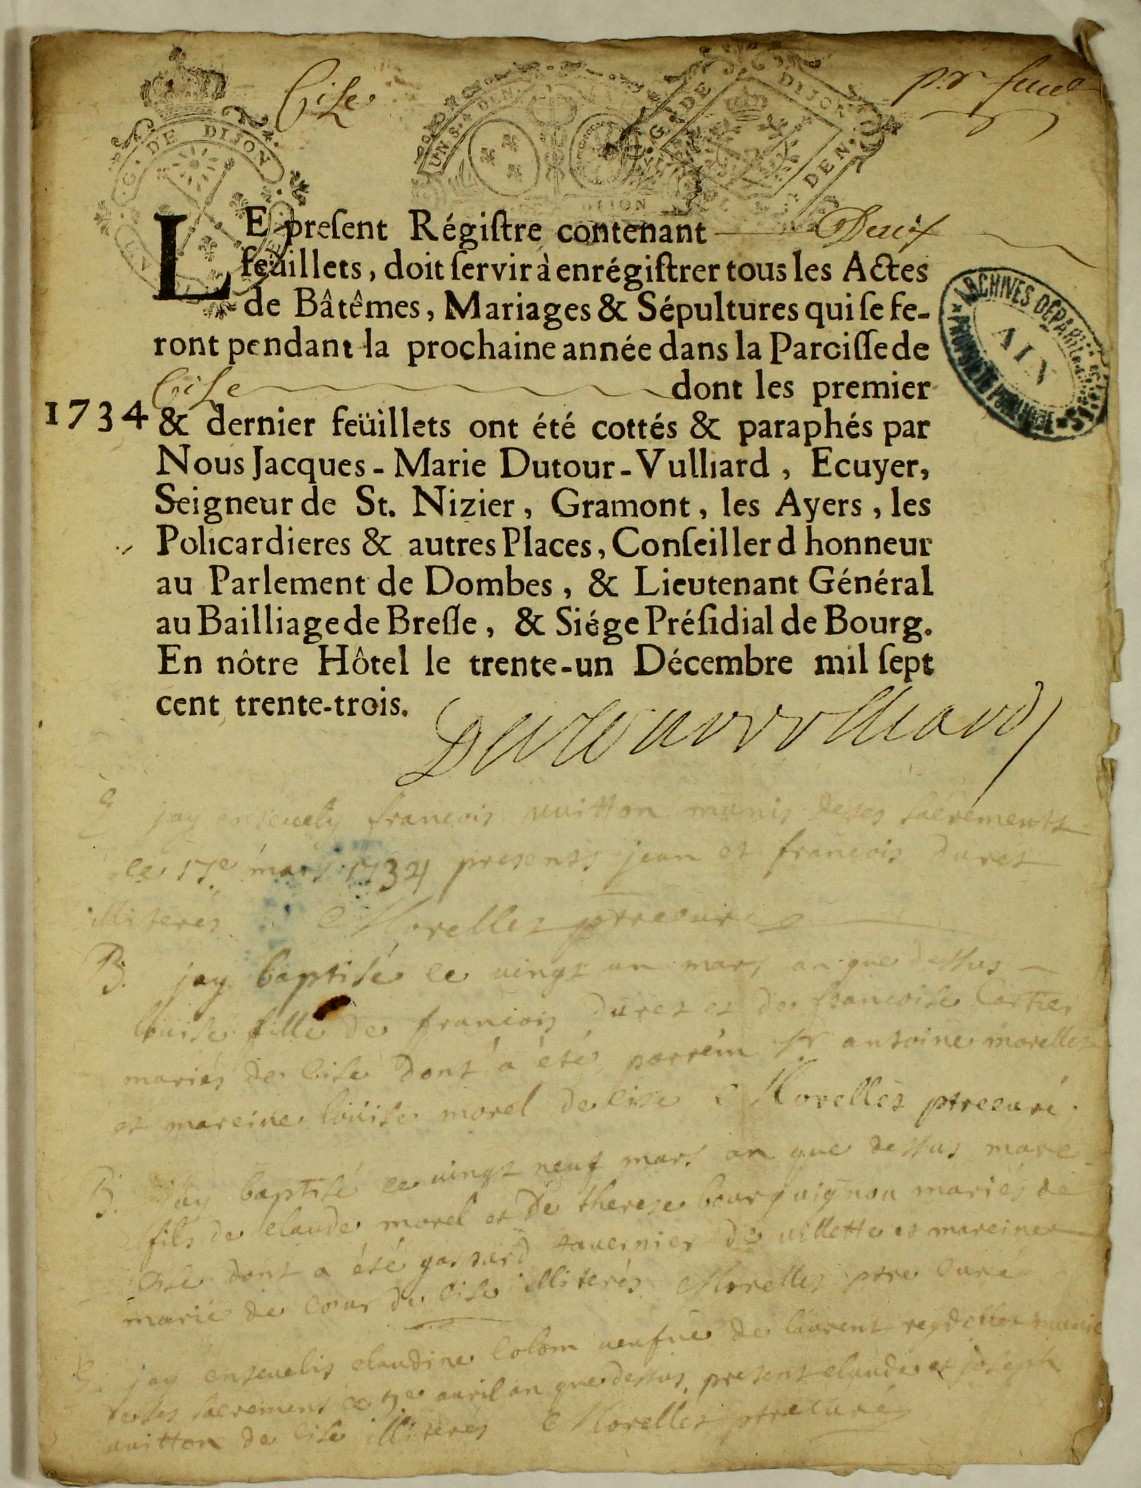 Cise
G. DE DIJON
UN S. DEN.
G. DE DIJON
DEN.
DIJON
LE preſent Régiſtre contenant Deux
feüillets, doit ſervir à enrégiſtrer tous les Actes
de Bâtêmes, Mariages & Sépultures qui ſe fe-
ront pendant la prochaine année dans la Paroiſſe de
Cise dont les premier
1734 & dernier feüillets ont été cottés & paraphés par
Nous Jacques-Marie Dutour-Vulliard, Ecuyer,
Seigneur de St. Nizier, Gramont, les Ayers, les
Policardieres & autres Places, Conſeiller d honneur
au Parlement de Dombes, & Lieutenant Général
au Bailliage de Breſſe, & Siége Préſidial de Bourg.
En nôtre Hôtel le trente-un Décembre mil ſept
cent trente-trois.
ARCHIVES DÉPARTEMENTALES
AIN
PROPRIÉTÉ PUBLIQUE
Dutour vulliard
jay ensevely francois vuitton munis de ses sacrements
ce 17e mars 1734 presents jean et francois duret
illiterés Morellet ptre curé
B. jay baptisé ce vingt un mars an que dessus
louise fille de francois duret et de francoise Cartier
mariés de Cise dont a été parrein sr antoine morellet
et mareine louise morel de cise Morellet ptre curé
B. jay baptisé ce vingt neuf mars an que dessus marc
fils de claude morel et de therese bourguignon mariés de
Cise dont a été gaspard tavernier de villette et mareine
marie de cour de Cise illiterés Morellet ptre Curé
jay ensevelis claudine Colom veufve de laurent munie
de ses sacrements ce avril an que dessus, present claude et joseph
vuitton de Cise illiterés Morellet ptre curé